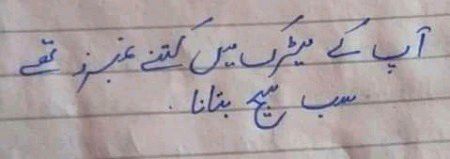 آپ کے میٹرک میں کتنے نمبرز تھے
سب سچ بتانا .